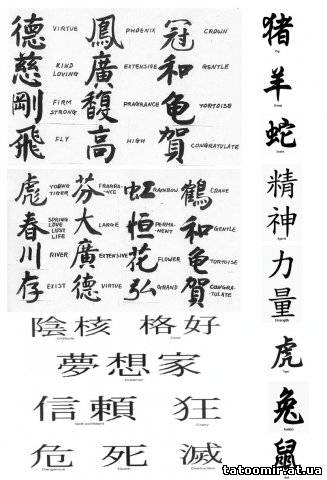 德 VIRTUE 鳳 PHOENIX 冠 CROWN
慈 KIND LOVING 廣 EXTENSIVE 和 GENTLE
剛 FIRM STRONG 馥 FRAGRANCE 龜 TORTOISE
飛 FLY 高 HIGH 賀 CONGRATULATE
虎 YOUNG TIGER 芬 FRAGRANCE 虹 RAINBOW 鶴 CRANE
春 SPRING LOVE LUST LIFE 大 LARGE 恒 PERMANENT 和 GENTLE
川 RIVER 廣 EXTENSIVE 花 FLOWER 龜 TORTOISE
存 EXIST 德 VIRTUE 弘 GRAND 賀 CONGRATULATE
陰核 格好
夢想家
Dreamer
信頼 狂
Self-confident Crazy
危 死 滅
Dangerous Death Destruction
猪
Pig
羊
Sheep
蛇
Snake
精神
Spirit
力量
Strength
虎
Tiger
兔
Rabbit
鼠
Rat
tatoomir.at.ua